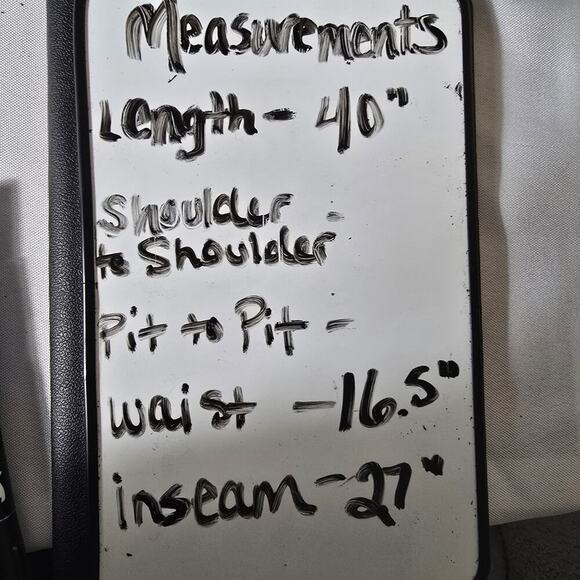 Measurements
Length - 40"
Shoulder -
to Shoulder
Pit to Pit -
waist - 16.5"
inseam - 27"